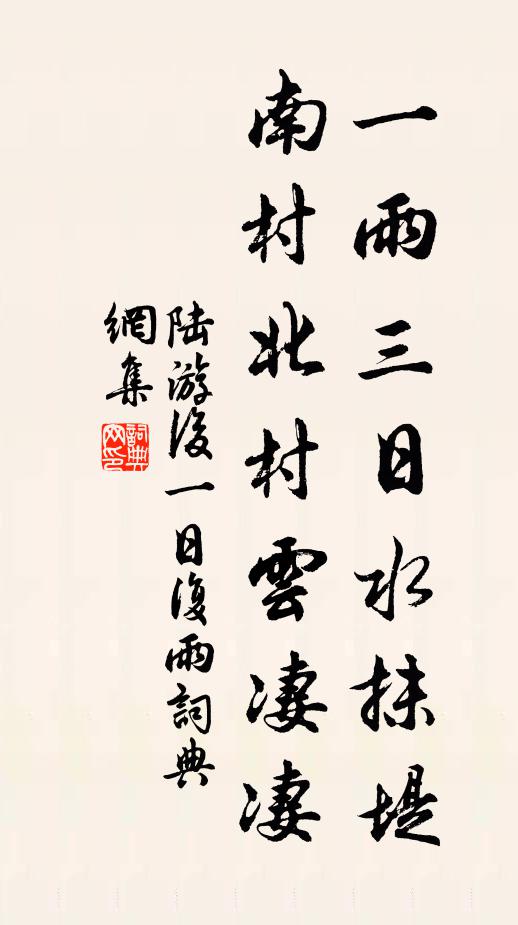 一雨三日水抹堤
南村北村雲凄凄
陆游後一日復雨詞典
網集
詞典